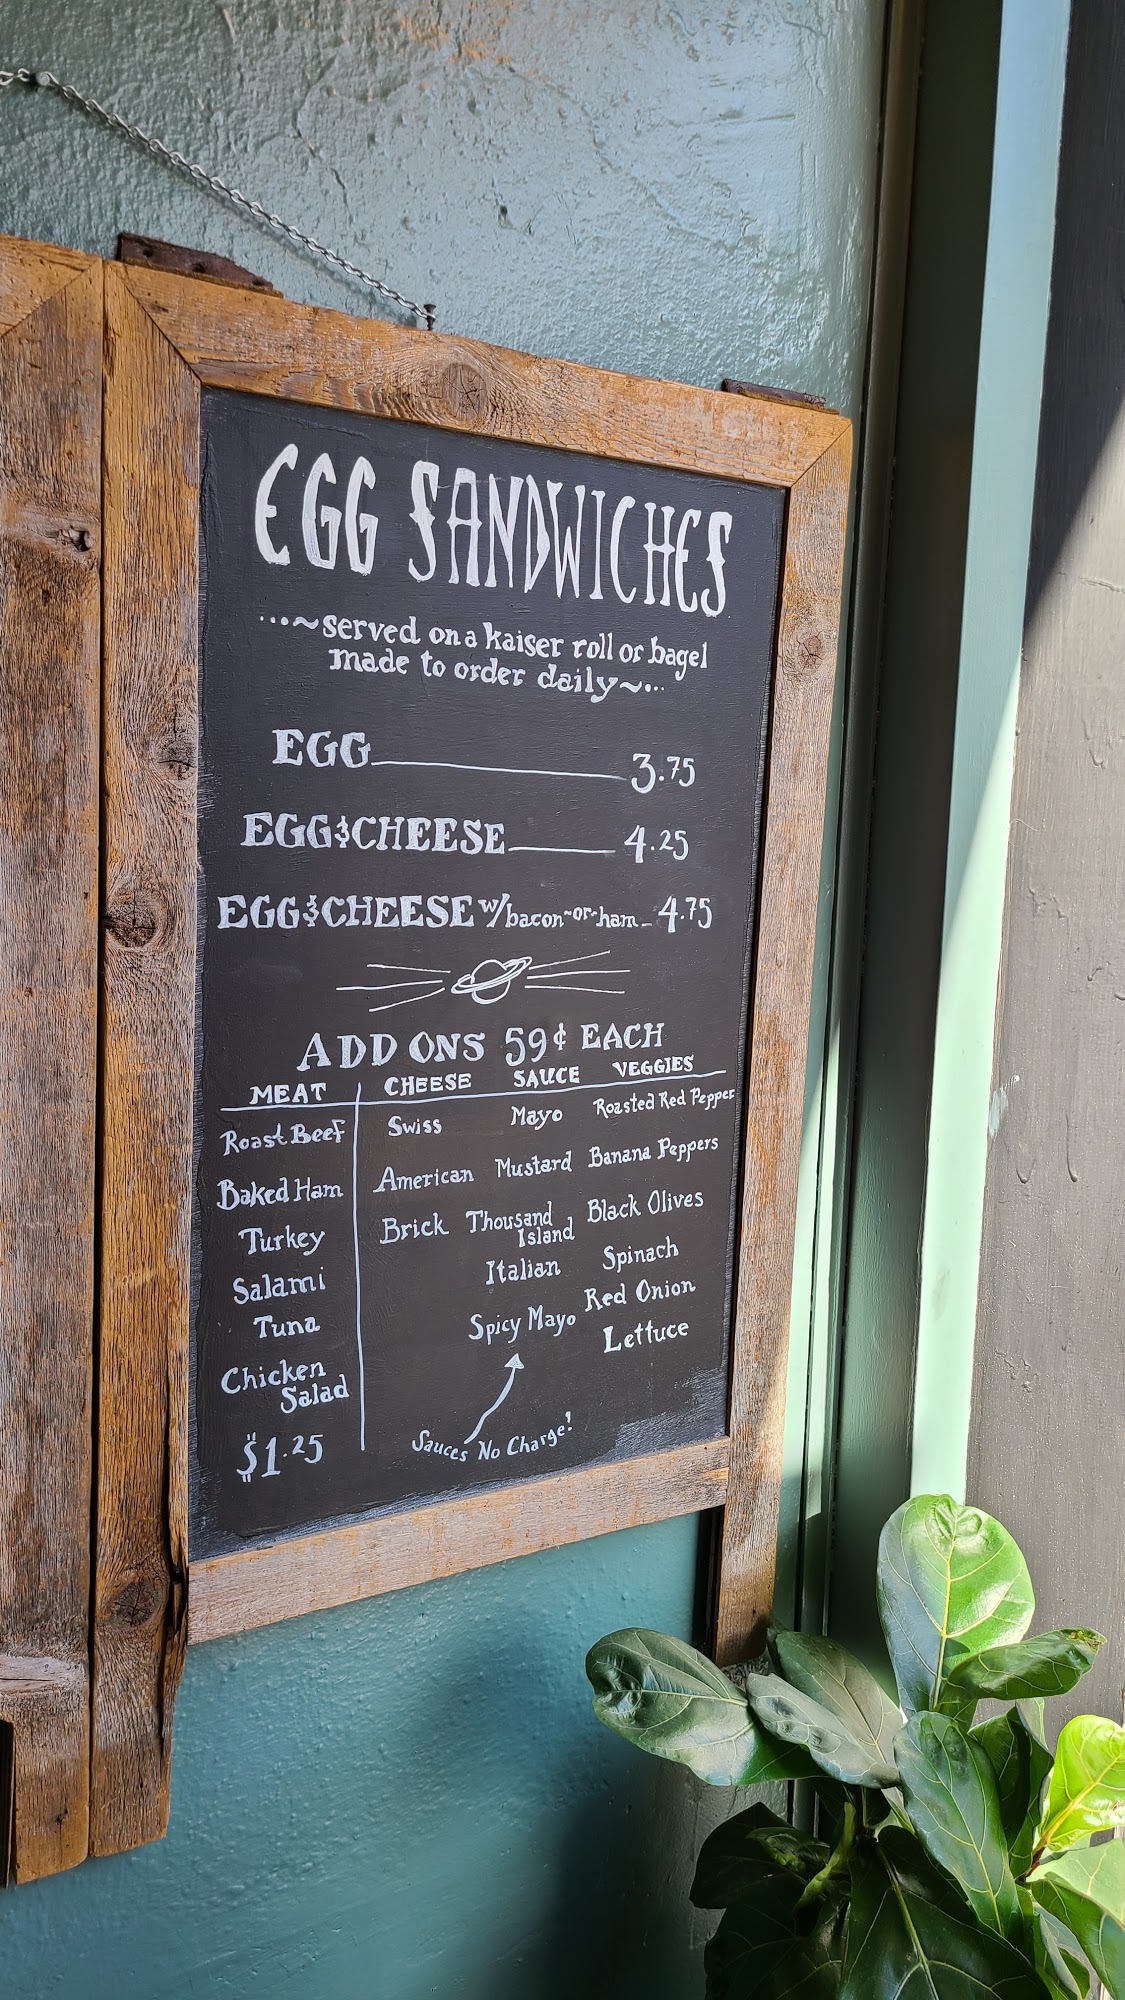 EGG SANDWICHES
...~served on a kaiser roll or bagel
made to order daily~...
EGG 3.75
EGG & CHEESE 4.25
EGG & CHEESE w/bacon-or-ham 4.75
ADD ONS 59¢ EACH
MEAT CHEESE SAUCE VEGGIES
Roast Beef Swiss Mayo Roasted Red Pepper
Baked Ham American Mustard Banana Peppers
Turkey Brick Thousand Island Black Olives
Salami Italian Spinach
Tuna Spicy Mayo Red Onion
Chicken Salad Lettuce
$1.25 Sauces No Charge!